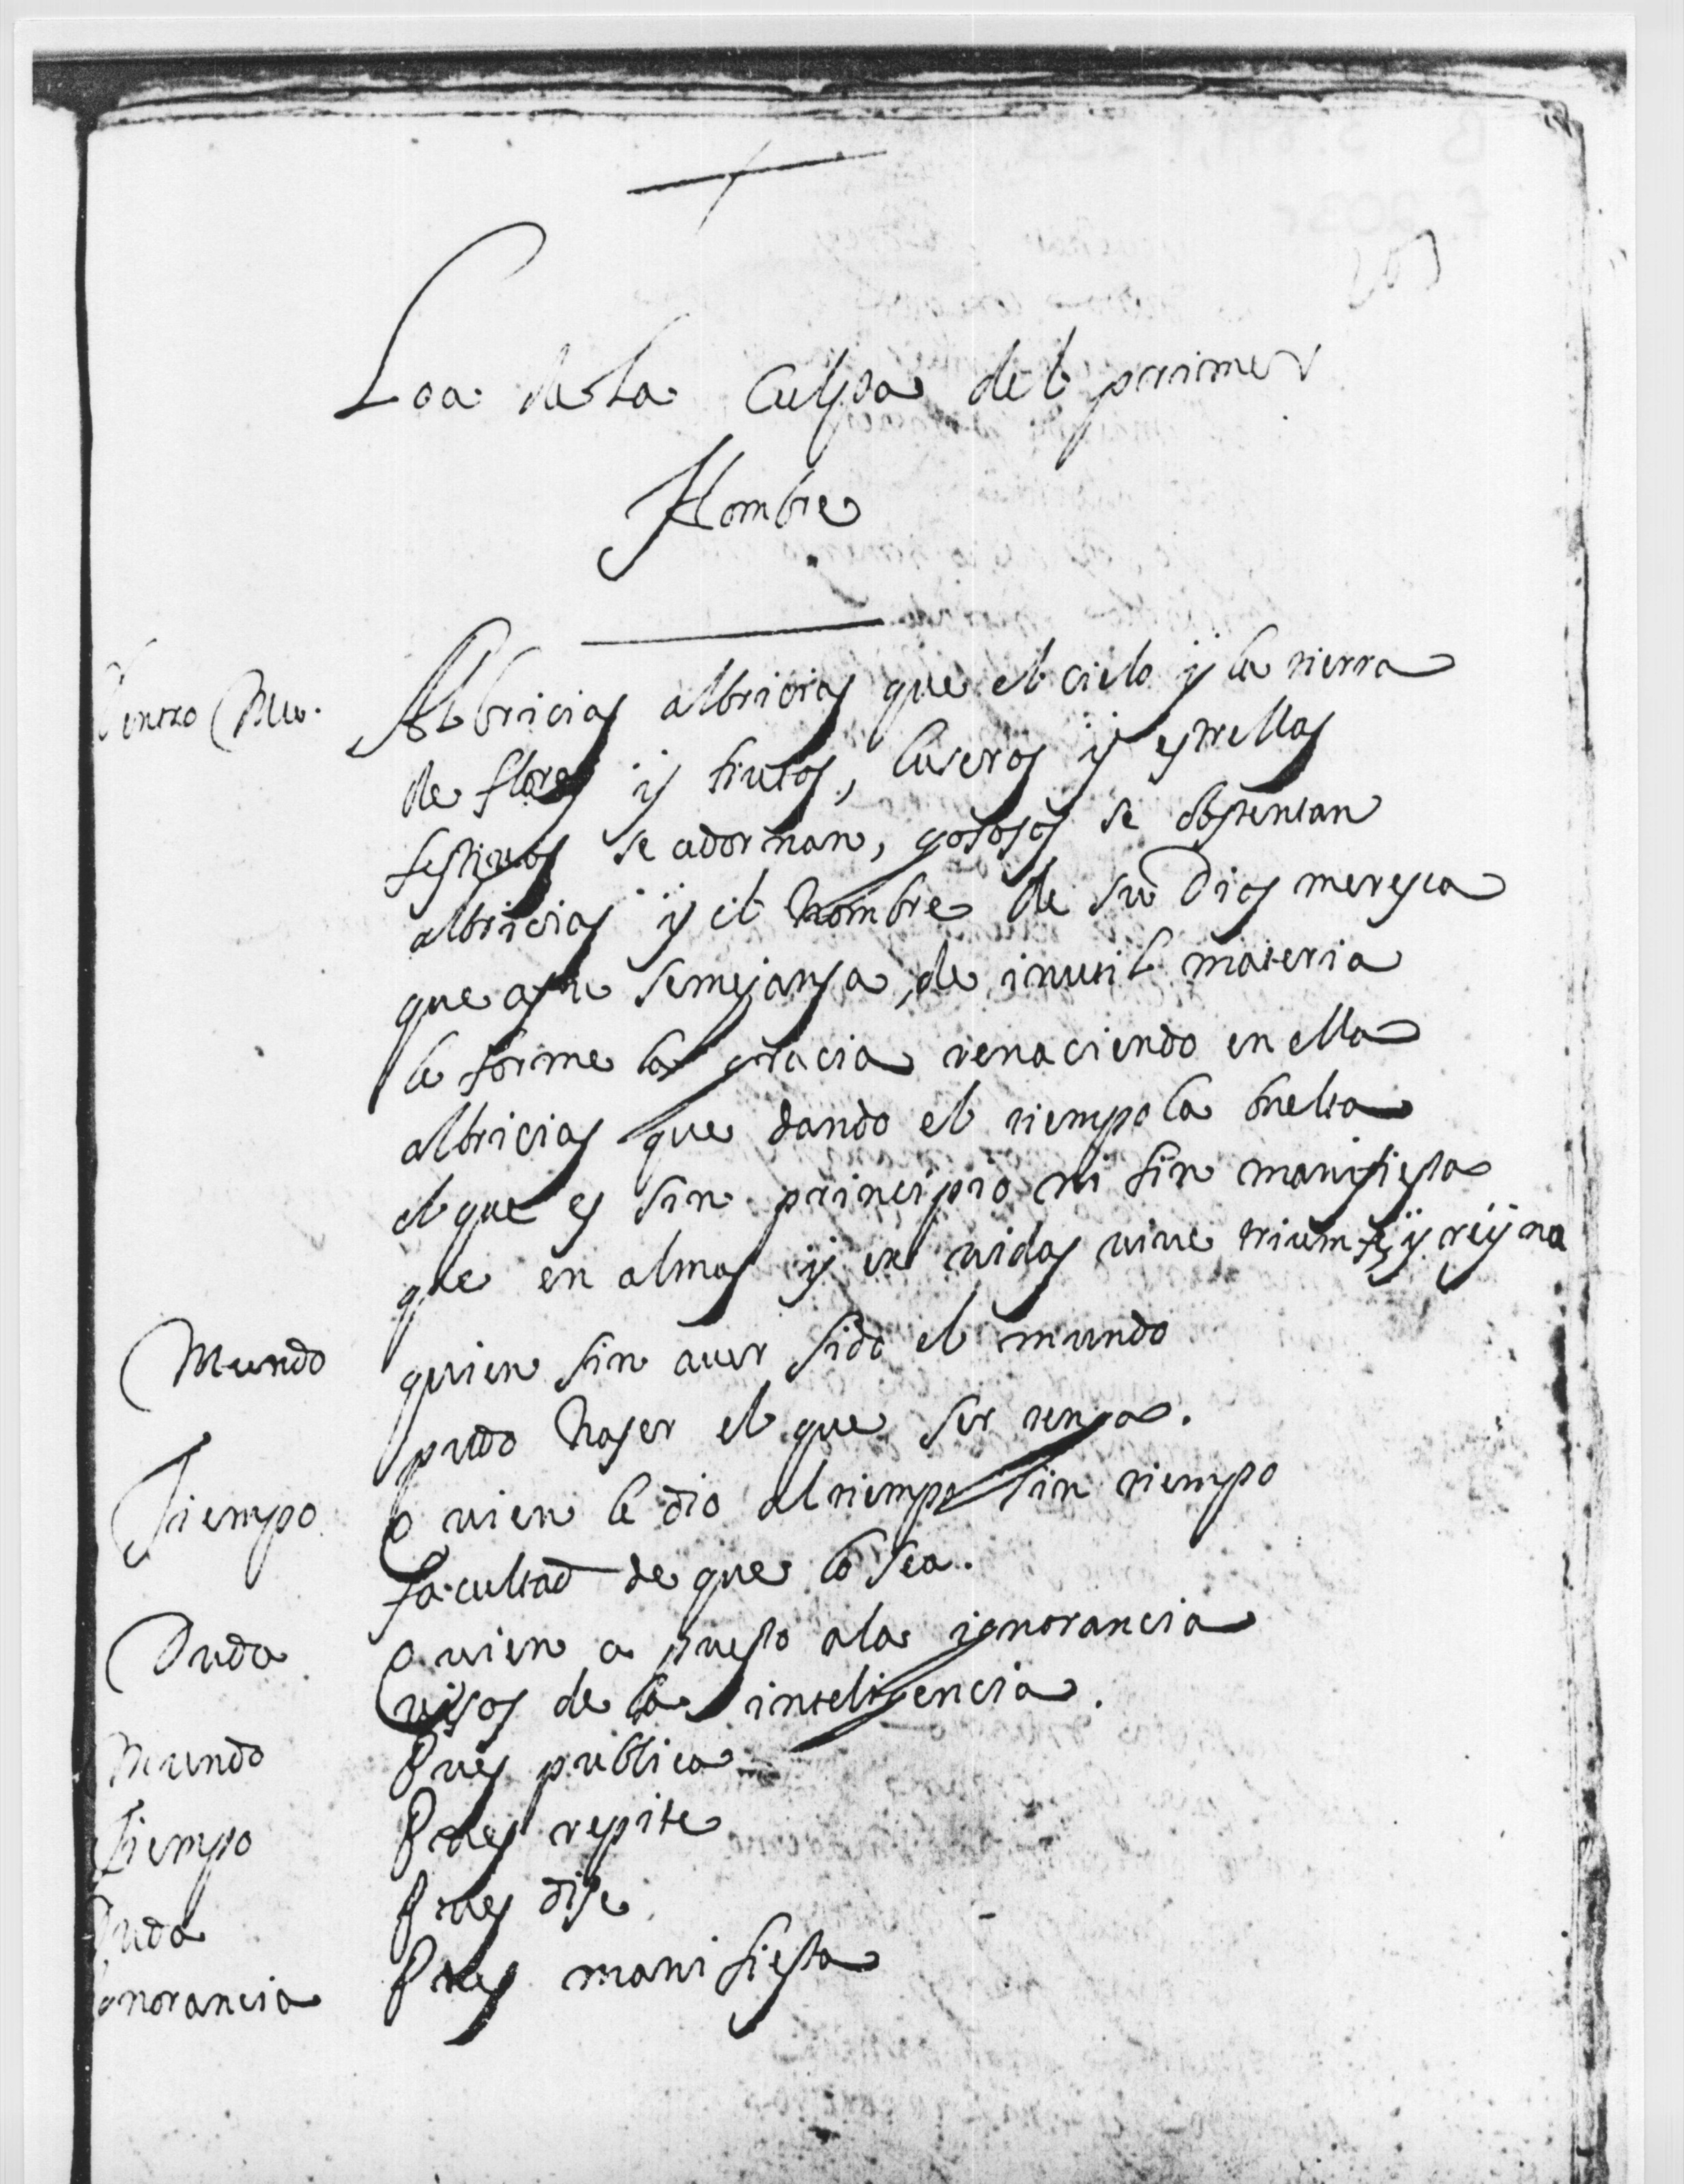 203
Loa de la Culpa del primer
Hombre
Dentro Mu. Albricias albricias que el cielo ÿ la tierra
de flores ÿ frutos, luseros ÿ estrellas
festiuos se adornan, gososos se obstentan
albricias ÿ el hombre de su Dios meresca
que asu semejansa, de inutil materia
le forme la gracia renaciendo en ella
albricias que dando el tiempo la buelta
el que es sin principio ni fin manifiesta
que en almas ÿ en vidas viue triumfa, ÿ reÿna
Mundo quien sin auer sido el mundo
pudo haser el que ser tenga.
Tiempo Quien le dio al tiempo sin tiempo
facultad de que lo sea.
Duda Quien a puesto ala ignorancia
visos de la inteligencia.
Mundo Pues publica
Tiempo Pues repite
Duda Pues dise
Ignorancia Pues manifiesta